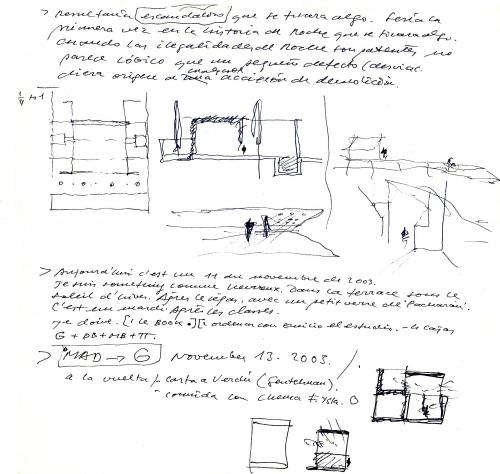 > resultaría escandaloso que se tirara algo. Sería la
primera vez en la historia de Roche que se tirara algo.
cuando las ilegalidades de Roche son patentes, no
parece lógico que un pequeño defecto
diera origen a una acción de demolición.
> Aujourd'hui c'est un 11 du novembre de 2003.
Je suis something comme nerveux. Dans la terrace sous le
soleil d'hiver. Après le repas, avec un petit verre de "pacharán".
C'est un mardi. Après les classes.
je dois. [1 le BOOK.] [1 ordenar con el estudio. - 4 cajas
G + BB + MB + TT.
> MAD → G November 13. 2003.
a la vuelta carta a (Gentleman).
- comida con Chema